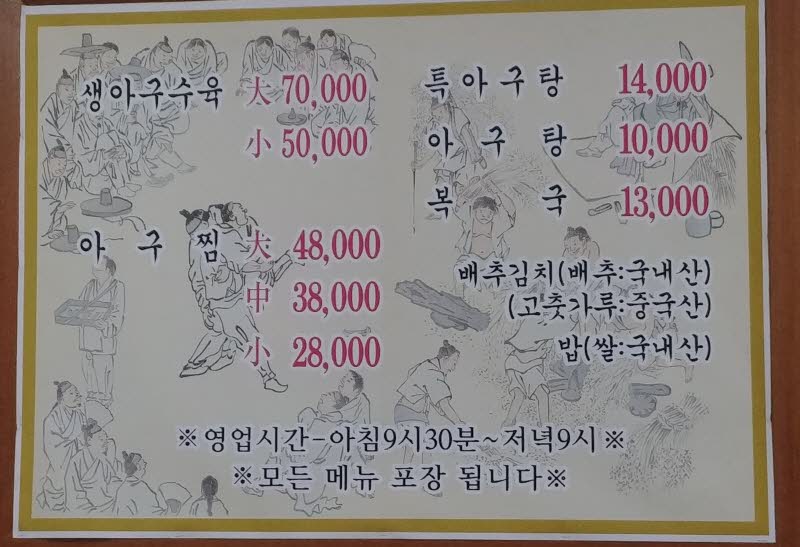 생아구수육 大 70,000
小 50,000
아구찜 大 48,000
中 38,000
小 28,000
특아구탕 14,000
아구탕 10,000
복국 13,000
배추김치(배추:국내산)
(고춧가루:중국산)
밥(쌀:국내산)
※영업시간-아침9시30분~저녁9시※
※모든 메뉴 포장 됩니다※